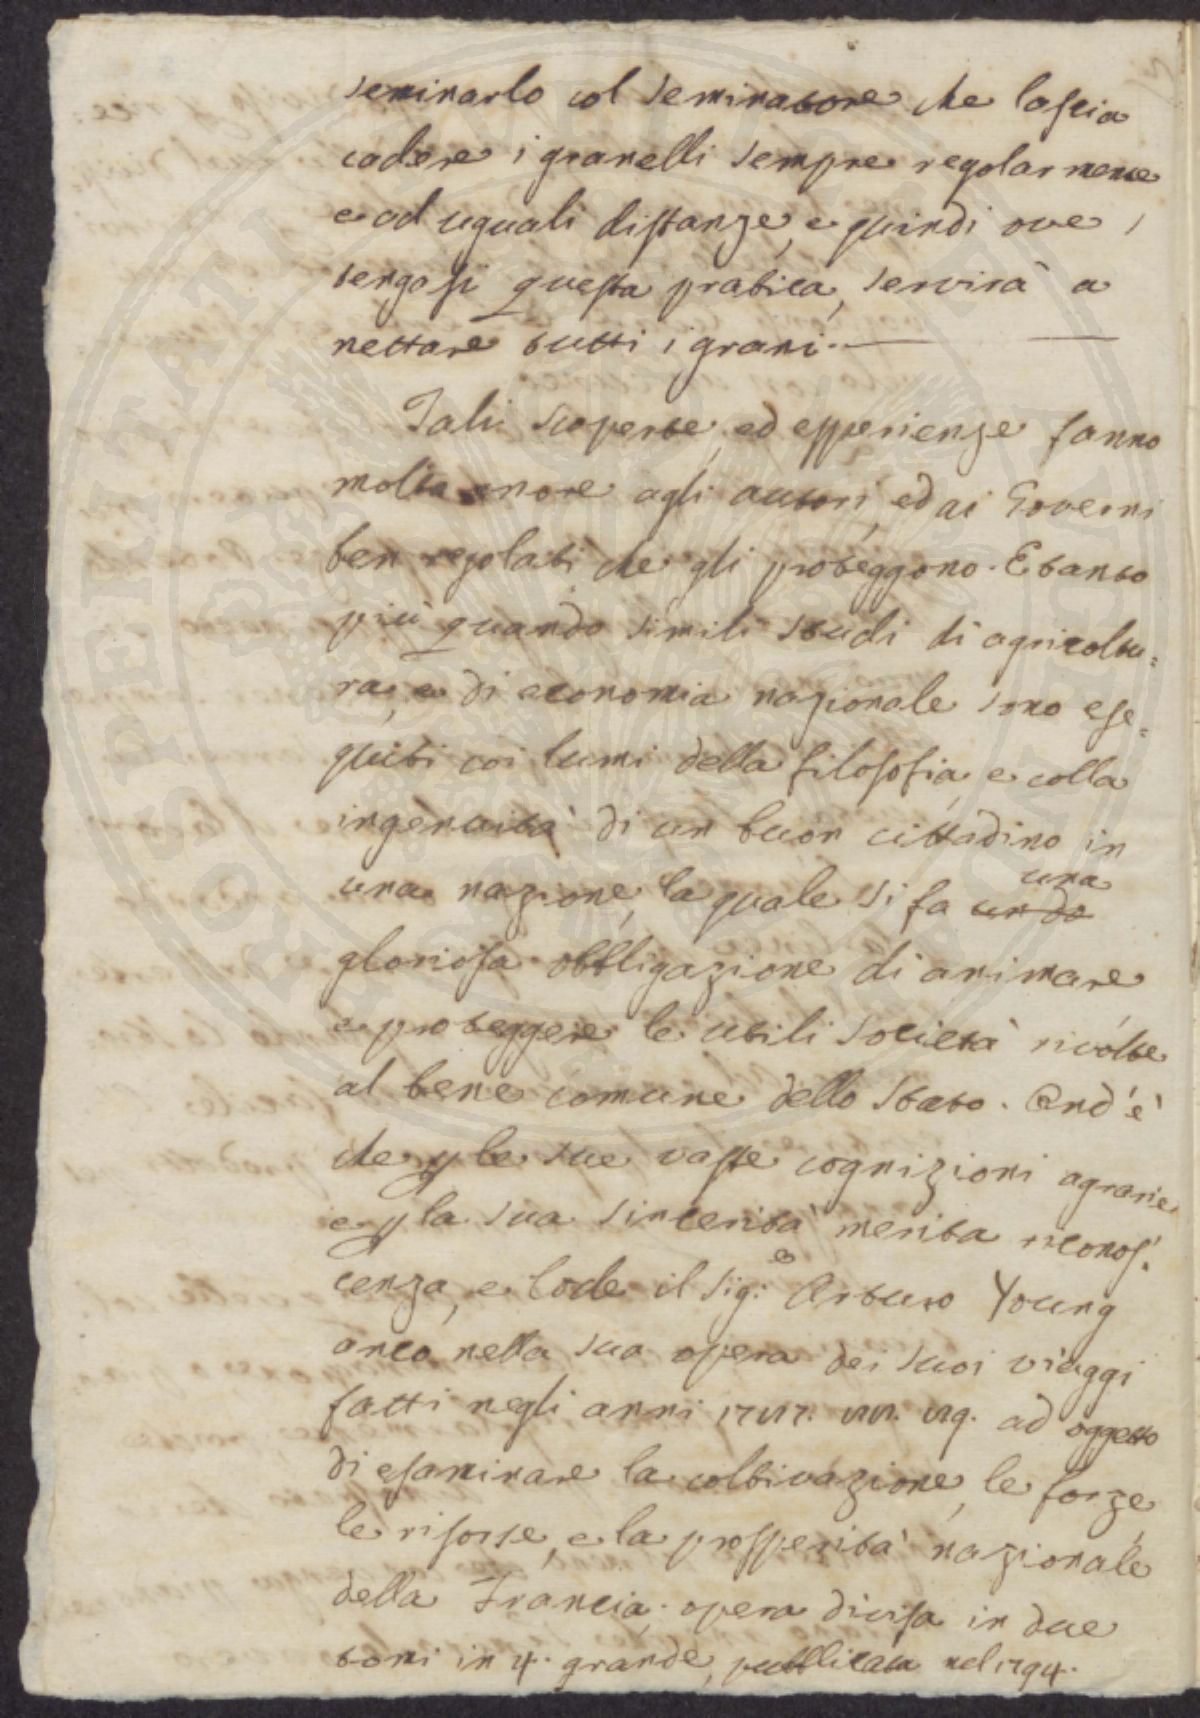 seminarlo col seminatore che lascia
cadere i granelli sempre regolarmente
e ad uguali distanze, e quindi ove
tengasi questa pratica, servirà a
nettare tutti i grani.
Tali scoperte, ed esperienze fanno
molto onore agli autori, ed ai Governi
ben regolati che gli proteggono. E tanto
più quando simili studi di agricoltu=
ra, e di economia nazionale sono ese=
guiti coi lumi della filosofia, e colla
ingenuità di un buon cittadino in
una nazione, la quale si fa una
gloriosa obbligazione di animare
e proteggere le utili Società rivolte
al bene comune dello Stato. Ond'è
che p le sue vaste cognizioni agrarie
e p la sua sincerità merita riconos=
cenza, e lode il Sig:e Arturo Young
anco nella sua opera dei suoi viaggi
fatti negli anni 1787. 88. 89. ad oggetto
di esaminare la coltivazione, le forze,
le risorse, e la prosperità nazionale
della Francia. opera divisa in due
tomi in 4. grande, pubblicata nel 1794.
MEDIOLANENSIS
HOSPITALITATI